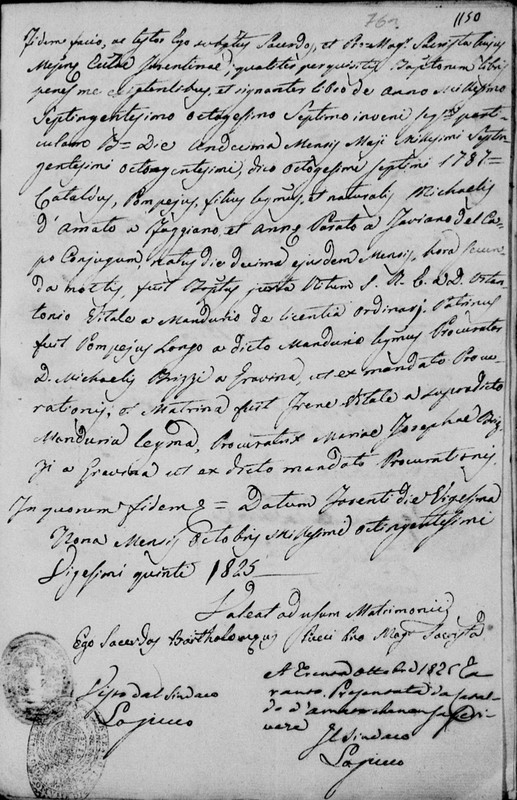 76. 1150
Fidem facio, ac testor Ego Sacerdos, et Pro Mag.r Sacrista hujus
Majoris Juventinae, qualiter perquisitis Baptizatorum libris
penes me existentibus, et signanter libro de anno Millesimo
Septingentesimo octogesimo Septimo inveni
= Die undecima Mensis Maji Millesimi Septin
gentesimi octogentesimi, dico octogesimi septimi 1787=
Cataldus, Pompejus, filius legmus, et naturalis Michaelis
d'Amato a Faggiano, et Annae Parato a Gaviano del Ca
po Conjugum natus die decima ejusdem Mensis, hora secun
da noctis, fuit Bptus juxta Ritum S. R. E. a D. Ortan
tonio Vitale a Mandurio de licentia ordinarj. Patrinus
fuit Pompejus Longo a dicto Mandurio legmus Procurator
D. Michaelis Brizzi a Gravina, ut ex mandato Procu
rationis; et Matrina fuit Irene Vitale a supradicto
Manduria legma, Procuratrix Mariae Josephae Briz
zi a Gravina ut ex dicto mandato Procurationis.
In quorum fidem = Datum die Vigesima
Nona Mensis Octobris Millesimi octingentesimi
Vigesimi quinti 1825
Valeat ad usum Matrimonij
Ego Sacerdos Bartholomeus Pucci Pro Mag.r Sacrista
Visto dal Sindaco
Lojucco
A Trenta Ottobre 1825 Ta
ranto, Presentata da Catal
do d'Amato
vere
Il Sindaco
Lojucco